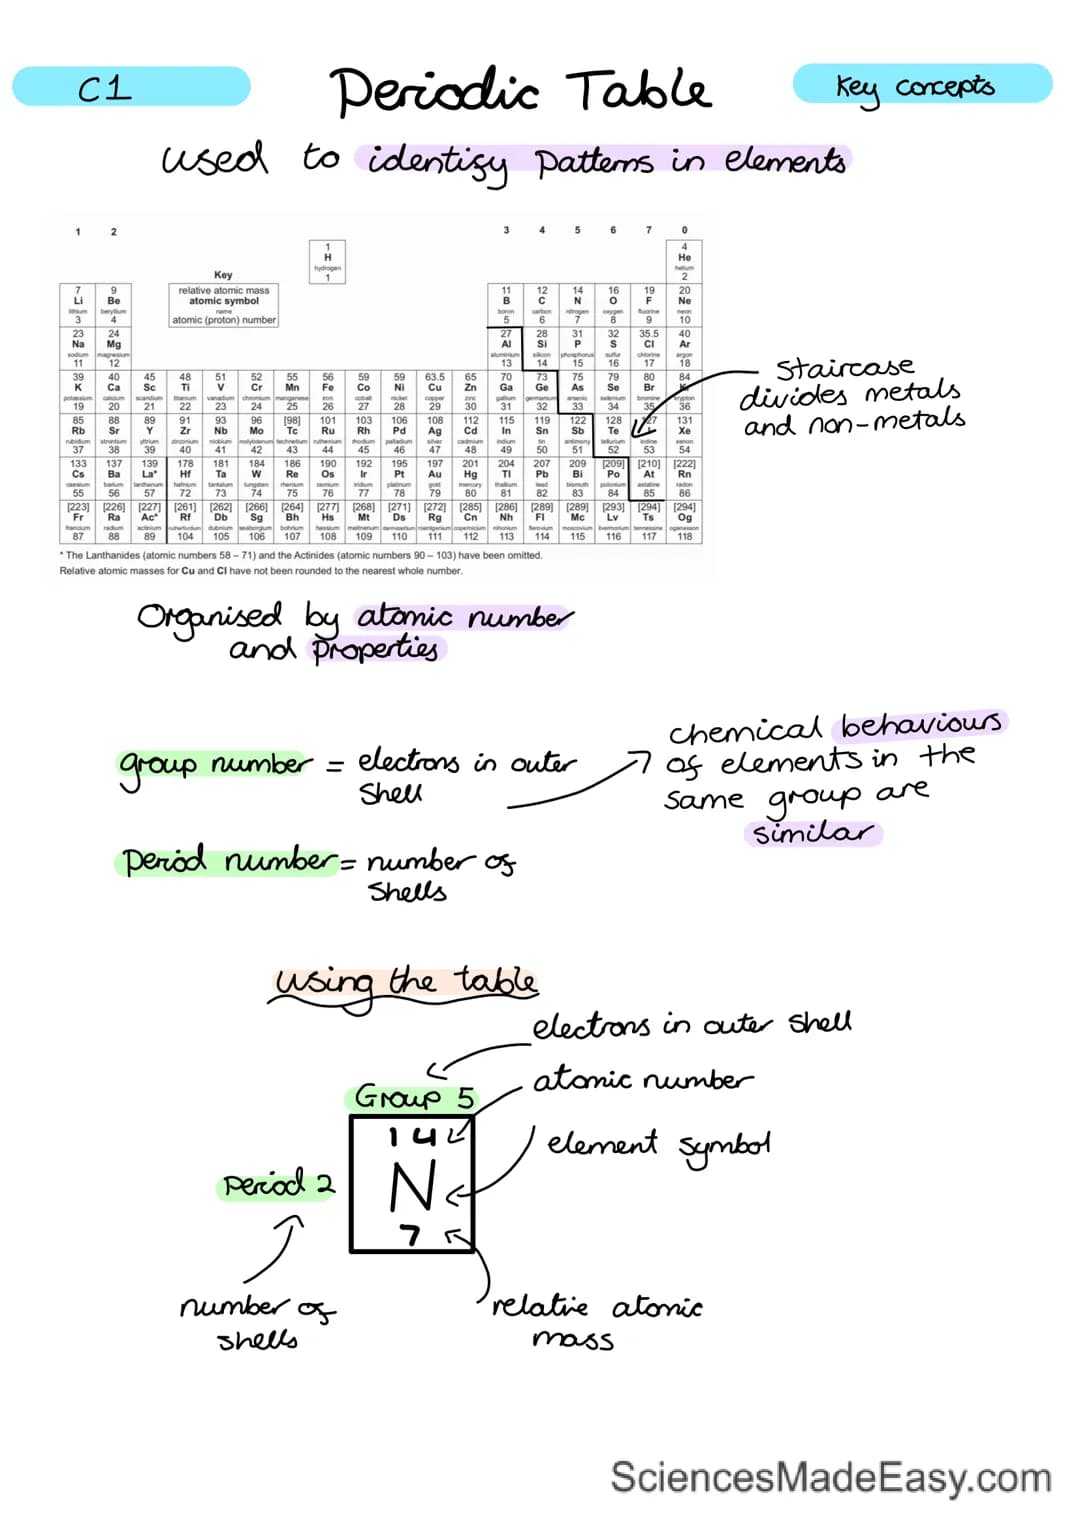 C1
Periodic Table
Key concepts
used to identify patterns in elements
1 2 3 4 5 6 7 0
1 4
H He
hydrogen helium
1 2
Key
relative atomic mass
atomic symbol
name
atomic (proton) number
7 9 11 12 14 16 19 20
Li Be B C N O F Ne
lithium beryllium boron carbon nitrogen oxygen fluorine neon
3 4 5 6 7 8 9 10
23 24 27 28 31 32 35.5 40
Na Mg Al Si P S Cl Ar
sodium magnesium aluminium silicon phosphorus sulfur chlorine argon
11 12 13 14 15 16 17 18
39 40 45 48 51 52 55 56 59 59 63.5 65 70 73 75 79 80 84
K Ca Sc Ti V Cr Mn Fe Co Ni Cu Zn Ga Ge As Se Br Kr
potassium calcium scandium titanium vanadium chromium manganese iron cobalt nickel copper zinc gallium germanium arsenic selenium bromine krypton
19 20 21 22 23 24 25 26 27 28 29 30 31 32 33 34 35 36
85 88 89 91 93 96 [98] 101 103 106 108 112 115 119 122 128 127 131
Rb Sr Y Zr Nb Mo Tc Ru Rh Pd Ag Cd In Sn Sb Te I Xe
rubidium strontium yttrium zirconium niobium molybdenum technetium ruthenium rhodium palladium silver cadmium indium tin antimony tellurium iodine xenon
37 38 39 40 41 42 43 44 45 46 47 48 49 50 51 52 53 54
133 137 139 178 181 184 186 190 192 195 197 201 204 207 209 [209] [210] [222]
Cs Ba La* Hf Ta W Re Os Ir Pt Au Hg Tl Pb Bi Po At Rn
caesium barium lanthanum hafnium tantalum tungsten rhenium osmium iridium platinum gold mercury thallium lead bismuth polonium astatine radon
55 56 57 72 73 74 75 76 77 78 79 80 81 82 83 84 85 86
[223] [226] [227] [261] [262] [266] [264] [277] [268] [271] [272] [285] [286] [289] [289] [293] [294] [294]
Fr Ra Ac* Rf Db Sg Bh Hs Mt Ds Rg Cn Nh Fl Mc Lv Ts Og
francium radium actinium rutherfordium dubnium seaborgium bohrium hassium meitnerium darmstadtium roentgenium copernicium nihonium flerovium moscovium livermorium tennessine oganesson
87 88 89 104 105 106 107 108 109 110 111 112 113 114 115 116 117 118
* The Lanthanides (atomic numbers 58 – 71) and the Actinides (atomic numbers 90 – 103) have been omitted.
Relative atomic masses for Cu and Cl have not been rounded to the nearest whole number.
staircase
divides metals
and non-metals
Organised by atomic number
and properties
group number = electrons in outer
shell
chemical behaviours
of elements in the
same group are
similar
period number = number of
shells
using the table
electrons in outer shell
Group 5
atomic number
14
element symbol
Period 2
N
7
number of
shells
relative atomic
mass
SciencesMadeEasy.com